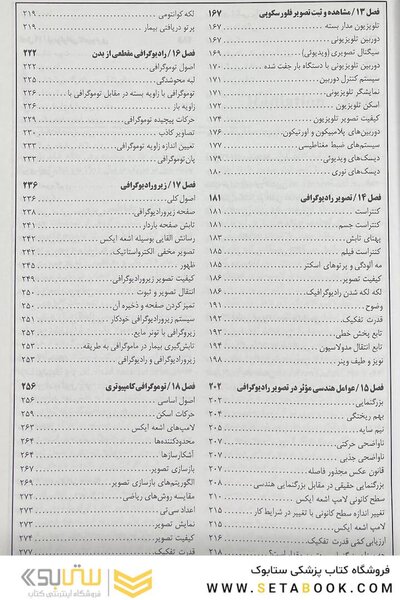 فصل ۱۳ / مشاهده و ثبت تصویر فلورسکوپی ۱۶۷
تلویزیون مدار بسته ۱۶۷
دوربین تلویزیونی ۱۶۷
سیگنال تصویری (ویدئویی) ۱۶۹
دوربین تلویزیونی با دستگاه بار جفت شده ۱۷۰
سیستم کنترل دوربین ۱۷۱
نمایشگر تلویزیونی ۱۷۱
اسکن تلویزیون ۱۷۲
کیفیت تصویر تلویزیون ۱۷۴
دوربین‌های پلامبیکون و اورتیکون ۱۷۶
سیستم‌های ضبط مغناطیسی ۱۷۷
دیسک‌های ویدیوئی ۱۷۹
دیسک‌های نوری ۱۸۰
فصل ۱۴ / تصویر رادیوگرافی ۱۸۱
کنتراست ۱۸۱
کنتراست جسم ۱۸۱
پهنای تابش ۱۸۳
کنتراست فیلم ۱۸۵
مه آلودگی و پرتوهای اسکتر ۱۸۵
کیفیت تصویر ۱۸۶
لکه لکه شدن رادیوگرافیک ۱۸۶
وضوح ۱۹۱
قدرت تفکیک ۱۹۲
تابع پخش خطی ۱۹۳
تابع انتقال مدولاسیون ۱۹۴
نویز و طیف وینر ۱۹۸
فصل ۱۵ / عوامل هندسی مؤثر در تصویر رادیوگرافی ۲۰۲
بزرگنمایی ۲۰۲
بهم ریختگی ۲۰۴
نیم سایه ۲۰۵
ناواضحی حرکتی ۲۰۷
ناواضحی جذبی ۲۰۷
قانون عکس مجذور فاصله ۲۰۷
بزرگنمایی حقیقی در مقابل بزرگنمایی هندسی ۲۰۸
سطح کانونی لامپ اشعه ایکس ۲۱۰
تغییر اندازه سطح کانونی با تغییر در شرایط کار ۲۱۵
لامپ اشعه ایکس
ارزیابی کمّی قدرت تفکیک ۲۱۶
لکه کوانتومی ۲۱۹
پرتو دریافتی بیمار ۲۱۹
فصل ۱۶ / رادیوگرافی مقطعی از بدن ۲۲۲
اصول توموگرافی ۲۲۲
لبه محوشدگی ۲۲۵
توموگرافی با زاویه بسته در مقابل توموگرافی با ۲۲۶
زاویه باز
حرکات پیچیده توموگرافی ۲۲۹
تصاویر کاذب ۲۳۰
تعیین اندازه زاویه توموگرافی ۲۳۳
پان‌توموگرافی ۲۳۳
فصل ۱۷ / زیرورادیوگرافی ۲۳۶
اصول کلی ۲۳۶
صفحه زیرورادیوگرافی ۲۳۸
تابش صفحه باردار ۲۴۱
رسانش القایی بوسیله اشعه ایکس ۲۴۲
تصویر مخفی الکترواستاتیک ۲۴۲
ظهور ۲۴۵
کیفیت تصویر زیرورادیوگرافی ۲۴۹
انتقال تصویر و ثبوت ۲۵۰
تمیز کردن صفحه و ذخیره آن ۲۵۰
سیستم زیرورادیوگرافی خودکار ۲۵۱
زیروگرافی با تونر مایع ۲۵۲
تابش‌گیری بیمار در ماموگرافی به طریقه ۲۵۳
زیرورادیوگرافی و رادیوگرافی ۲۵۳
فصل ۱۸ / توموگرافی کامپیوتری ۲۵۶
اصول اساسی ۲۵۶
حرکات اسکن ۲۵۹
لامپ‌های اشعه ایکس ۲۶۳
محدودکننده‌ها ۲۶۴
آشکارسازها ۲۶۴
بازسازی تصویر ۲۶۷
الگوریتم‌های بازسازی تصویر ۲۶۹
مقایسه روش‌های ریاضی ۲۷۲
اعداد سی‌تی ۲۷۳
نمایش تصویر ۲۷۳
کیفیت تصویر ۲۷۴
قدرت تفکیک ۲۷۷
ستابوک
فروشگاه اینترنتی کتاب
فروشگاه کتاب پزشکی ستابوک
WWW.SETABOOK.COM